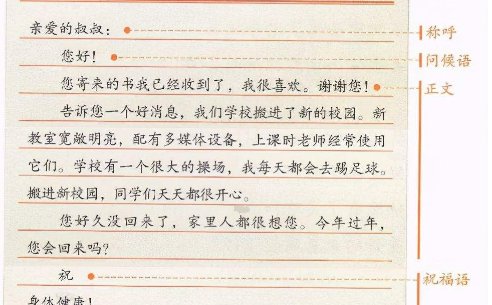 亲爱的叔叔：
称呼
您好！
问候语
您寄来的书我已经收到了，我很喜欢。谢谢您！
正文
告诉您一个好消息，我们学校搬进了新的校园。新
教室宽敞明亮，配有多媒体设备，上课时老师经常使用
它们。学校有一个很大的操场，我每天都会去踢足球。
搬进新校园，同学们天天都很开心。
您好久没回来了，家里人都很想您。今年过年，
您会回来吗？
祝
祝福语
身体健康！